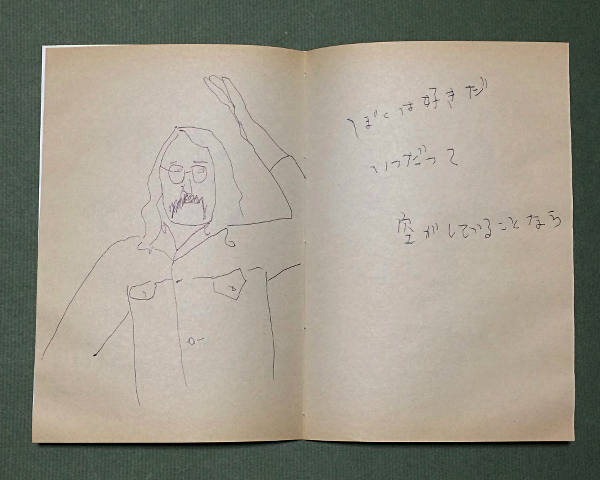 ぼくは好きだ
いつだって
空がしていることなら